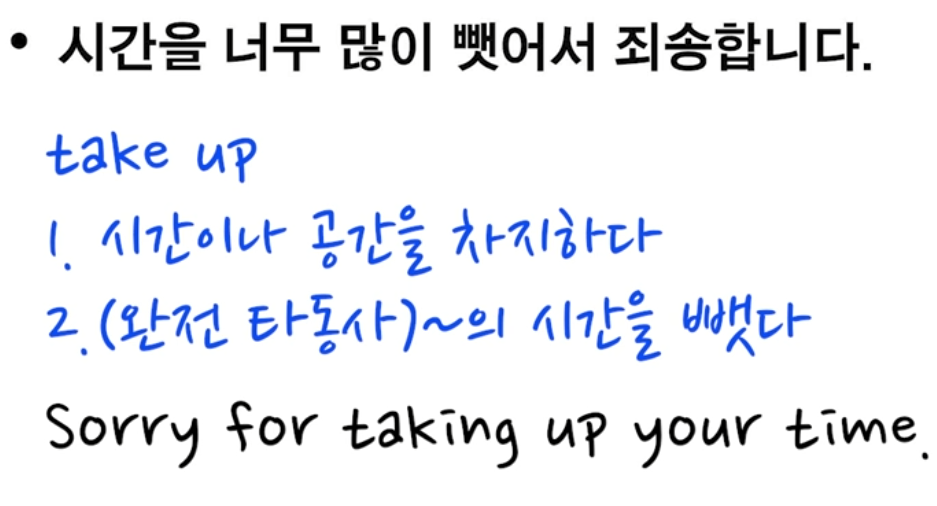 • 시간을 너무 많이 뺏어서 죄송합니다.
take up
1. 시간이나 공간을 차지하다
2. (완전 타동사)~의 시간을 뺏다
Sorry for taking up your time.